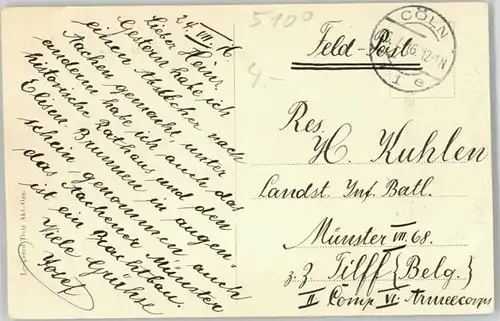 24 VIII 16
Lieber Heinz,
Gestern habe ich
einen Abstecher nach
Aachen gemacht, unter
anderem habe ich auch das
historische Rathaus und den
Elisen-Brunnen in augen-
schein genommen, auch
das Aachener Münster
ist ein Prachtbau.
Viele Grühse
5100
4.-
Feld-Post
CÖLN
1 e
Res.
H. Kuhlen
Landst. Inf. Batl.
Münster VII. 68.
z. Z Tilff {Belg.}
II Comp VI. Armeecorps